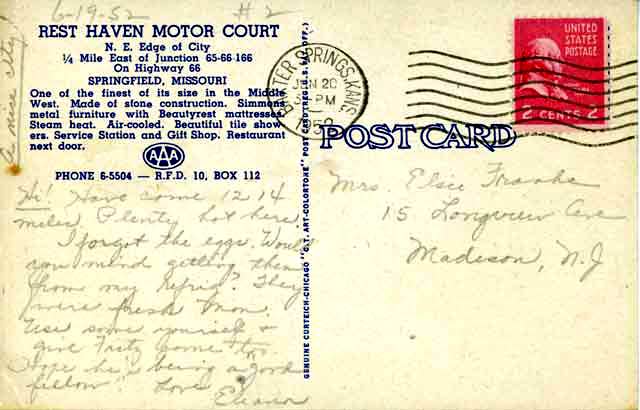 6-19-52 #2
REST HAVEN MOTOR COURT
N. E. Edge of City
¼ Mile East of Junction 65-66-166
On Highway 66
SPRINGFIELD, MISSOURI
One of the finest of its size in the Middle
West. Made of stone construction. Simmons
metal furniture with Beautyrest mattresses.
Steam heat. Air-cooled. Beautiful tile show-
ers. Service Station and Gift Shop. Restaurant
next door.
AAA
PHONE 6-5504 — R.F.D. 10, BOX 112
nice city!
Hi! Have come 1214
miles. Plenty hot here.
I forgot the eggs. Would
you mind getting them
from my refrig? They
were fresh Mon.
Use some yourself &
give Fritz some too.
Hope he is being "a good
fellow". Love
Eleanor
GENUINE CURTEICH-CHICAGO "C.T. ART-COLORTONE" POST CARD (REG. U.S. PAT. OFF.)
BAXTER SPRINGS, KANS.
JUN 20
PM
1952
UNITED
STATES
POSTAGE
2 CENTS 2
POST CARD
Mrs. Elsie Franke
15 Longview Ave
Madison, N.J